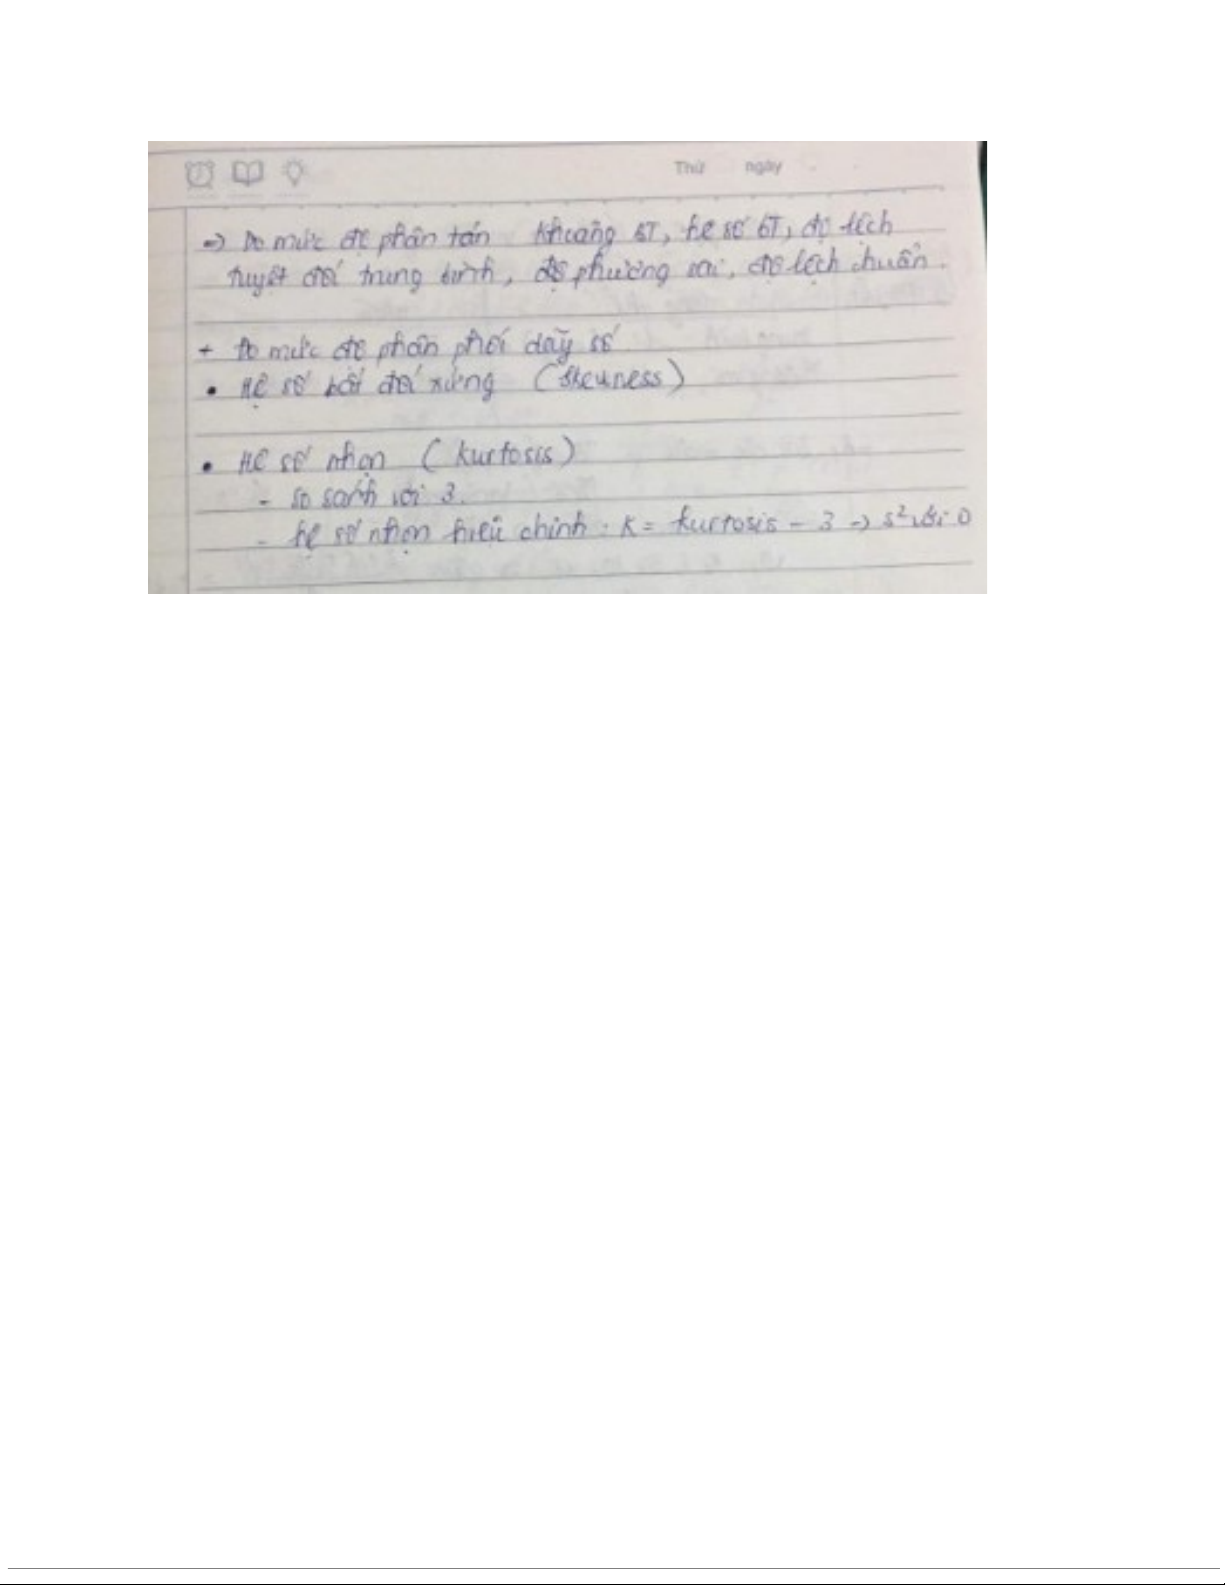 Thứ ngày
=> Đo mức độ phân tán khoảng BT, hệ số BT, độ lệch
tuyệt đối trung bình, độ phương sai, độ lệch chuẩn.
+ Đo mức độ phân phối dãy số
• Hệ số bất đối xứng (Skewness)
• Hệ số nhọn (kurtosis)
- so sánh với 3.
- hệ số nhọn hiệu chỉnh : K = kurtosis - 3 -> s² với 0